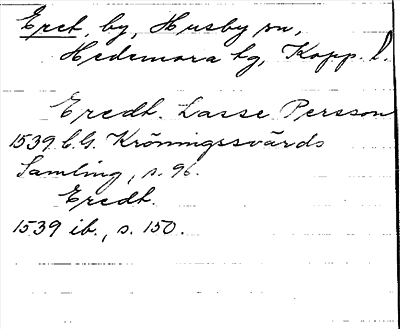 Eret, by, Husby sn,
Hedemora tg, Kopp. l.
Eredh. Lasse Persson
1539 C.G. Kröningssvärds
Samling, s. 96.
Eredh.
1539 ib., s. 150.